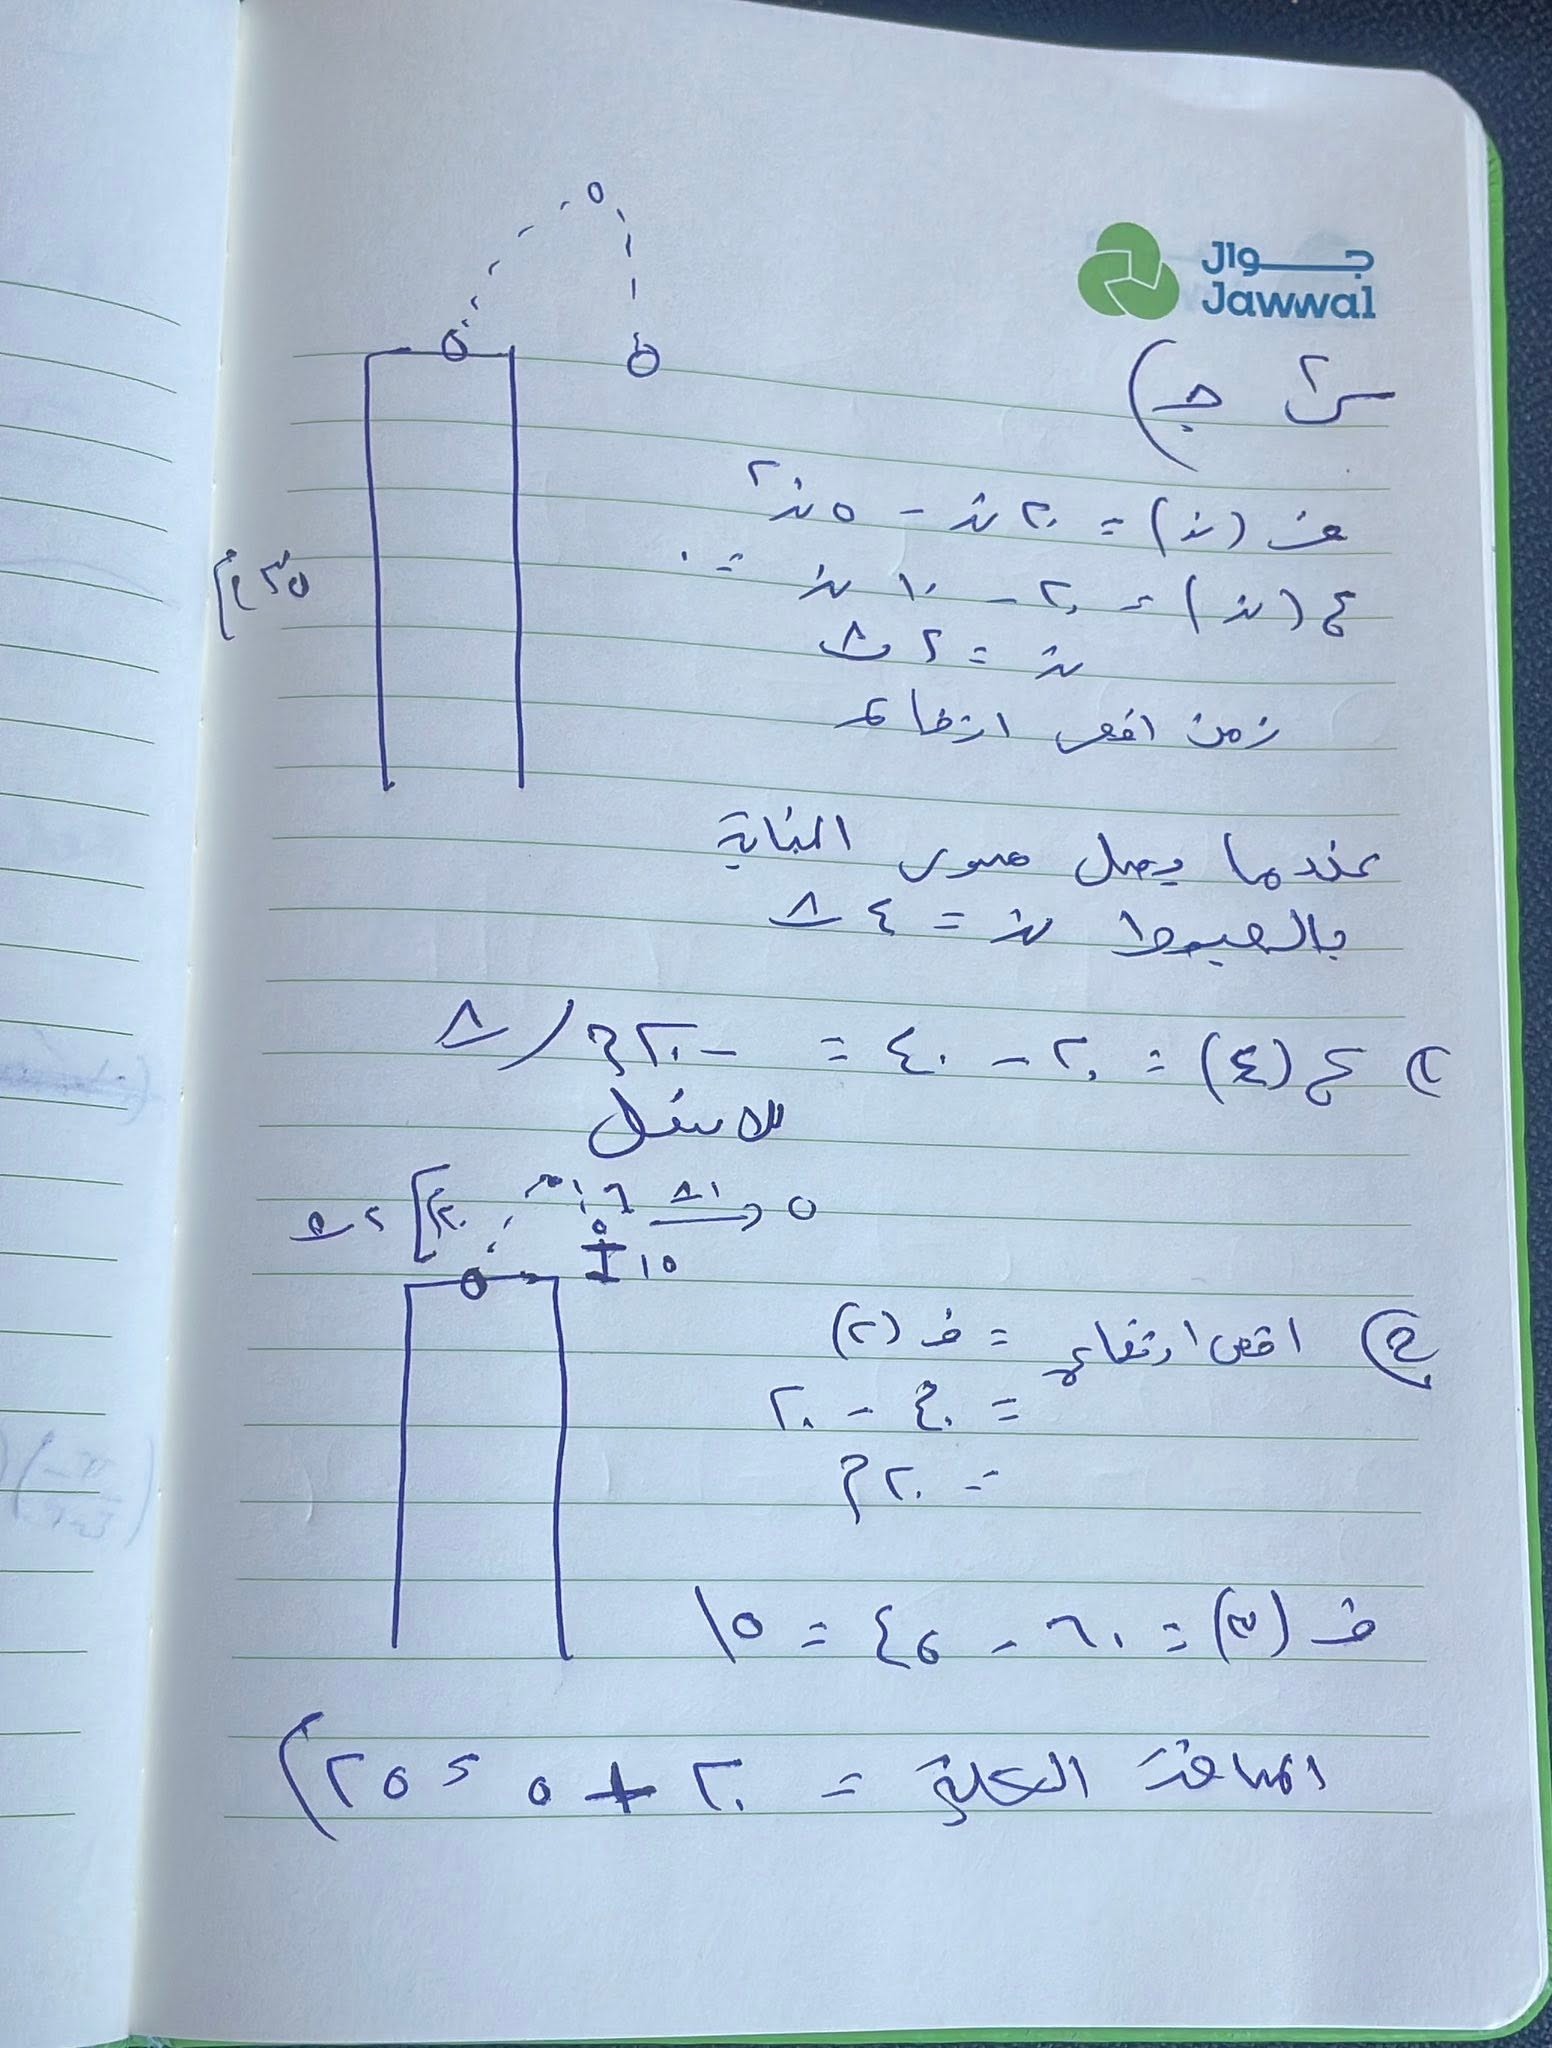 جوال
Jawwal
س٢ ج)
ف (ن) = ٢٠ ن - ٥ ن٢
ع (ن) = ٢٠ - ١٠ ن = ٠
ن = ٢ ث
زمن اقصى ارتفاع
٢٥ م
عندما يصل مستوى البناية
بالهبوط ن = ٤ ث
ع (٤) = ٢٠ - ٤٠ = -٢٠ م/ث
للاسفل
٢ ث
٢٠
١ ث
٥
١٥
اقصى ارتفاع = ف (٢)
= ٤٠ - ٢٠
= ٢٠ م
ف (٣) = ٦٠ - ٤٥ = ١٥
المسافة الكلية = ٢٠ + ٥ = ٢٥